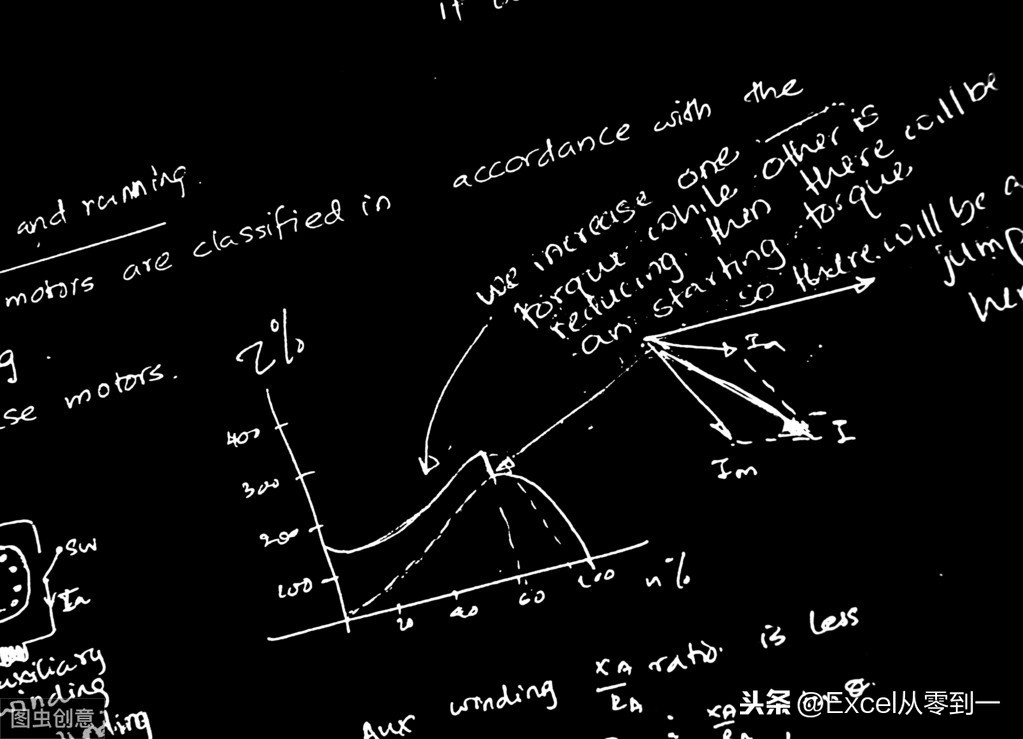 and running.
motors are classified in accordance with the
g.
se motors.
we increase one
torque while other is
reducing. then there will be
an starting torque,
so there will be a
jump
her
τ%
400
300
200
100
20
40
60
100
n%
Ia
I
Im
SW
Ia
uxiliary
winding
Aux winding XA/RA ratio is less
XA
图虫创意
头条 @Excel从零到一